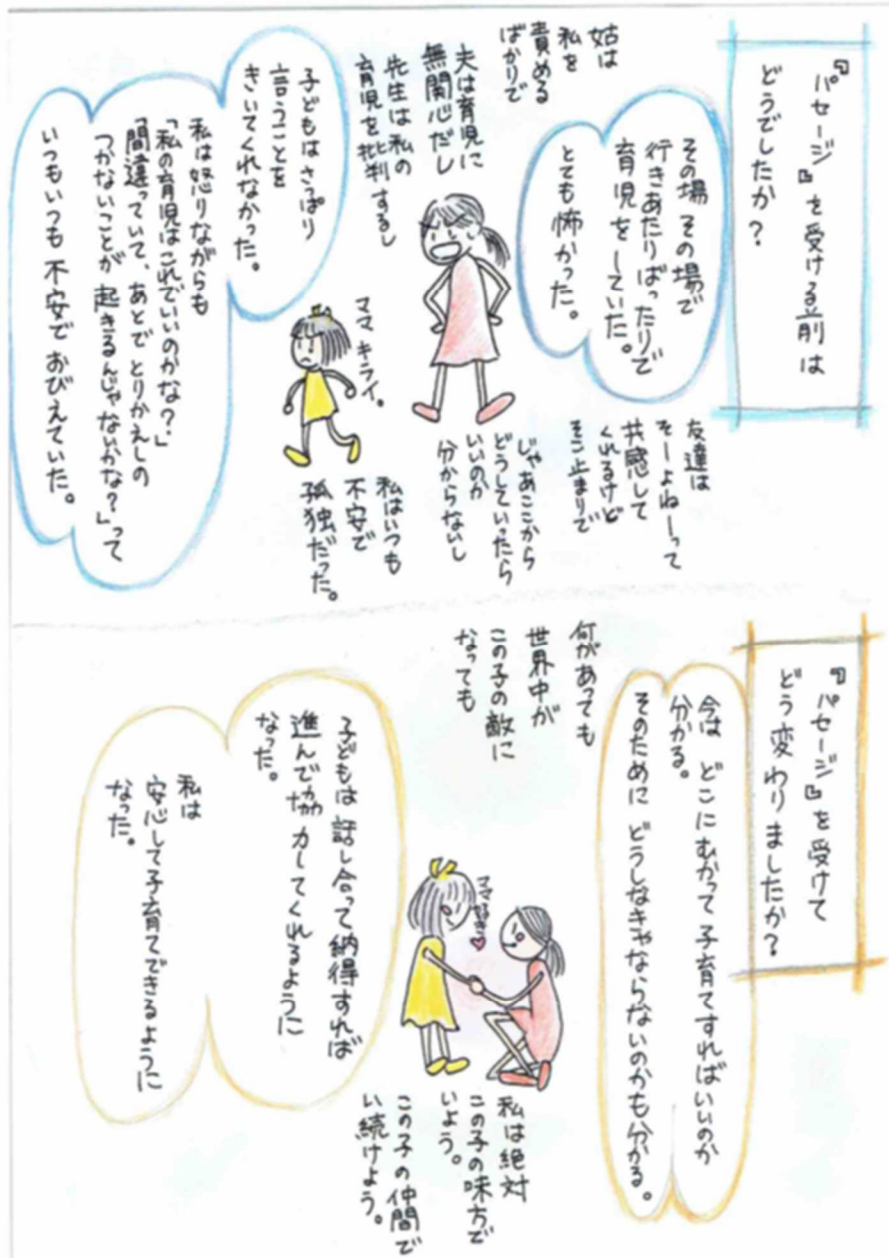 『パセージ』を受ける前は
どうでしたか?
その場その場で
行きあたりばったりで
育児をしていた。
とても怖かった。
姑は
私を
責める
ばかりで
夫は育児に
無関心だし
先生は私の
育児を批判するし
友達は
そーよねーって
共感して
くれるけど
そこ止まりで
じゃあここから
どうしていったら
いいのか
分からないし
私はいつも
不安で
孤独だった。
ママ キライ。
子どもはさっぱり
言うことを
きいてくれなかった。
私は怒りながらも
「私の育児はこれでいいのかな?」
「間違っていて、あとでとりかえしの
つかないことが起きるんじゃないかな?」って
いつもいつも不安でおびえていた。
『パセージ』を受けて
どう変わりましたか?
今は どこにむかって子育てすればいいのか
分かる。
そのために どうしなきゃならないのかも分かる。
何があっても
世界中が
この子の敵に
なっても
私は絶対
この子の味方で
いよう。
この子の仲間で
い続けよう。
ママ好き
子どもは話し合って納得すれば
進んで協力してくれるように
なった。
私は
安心して子育てできるように
なった。